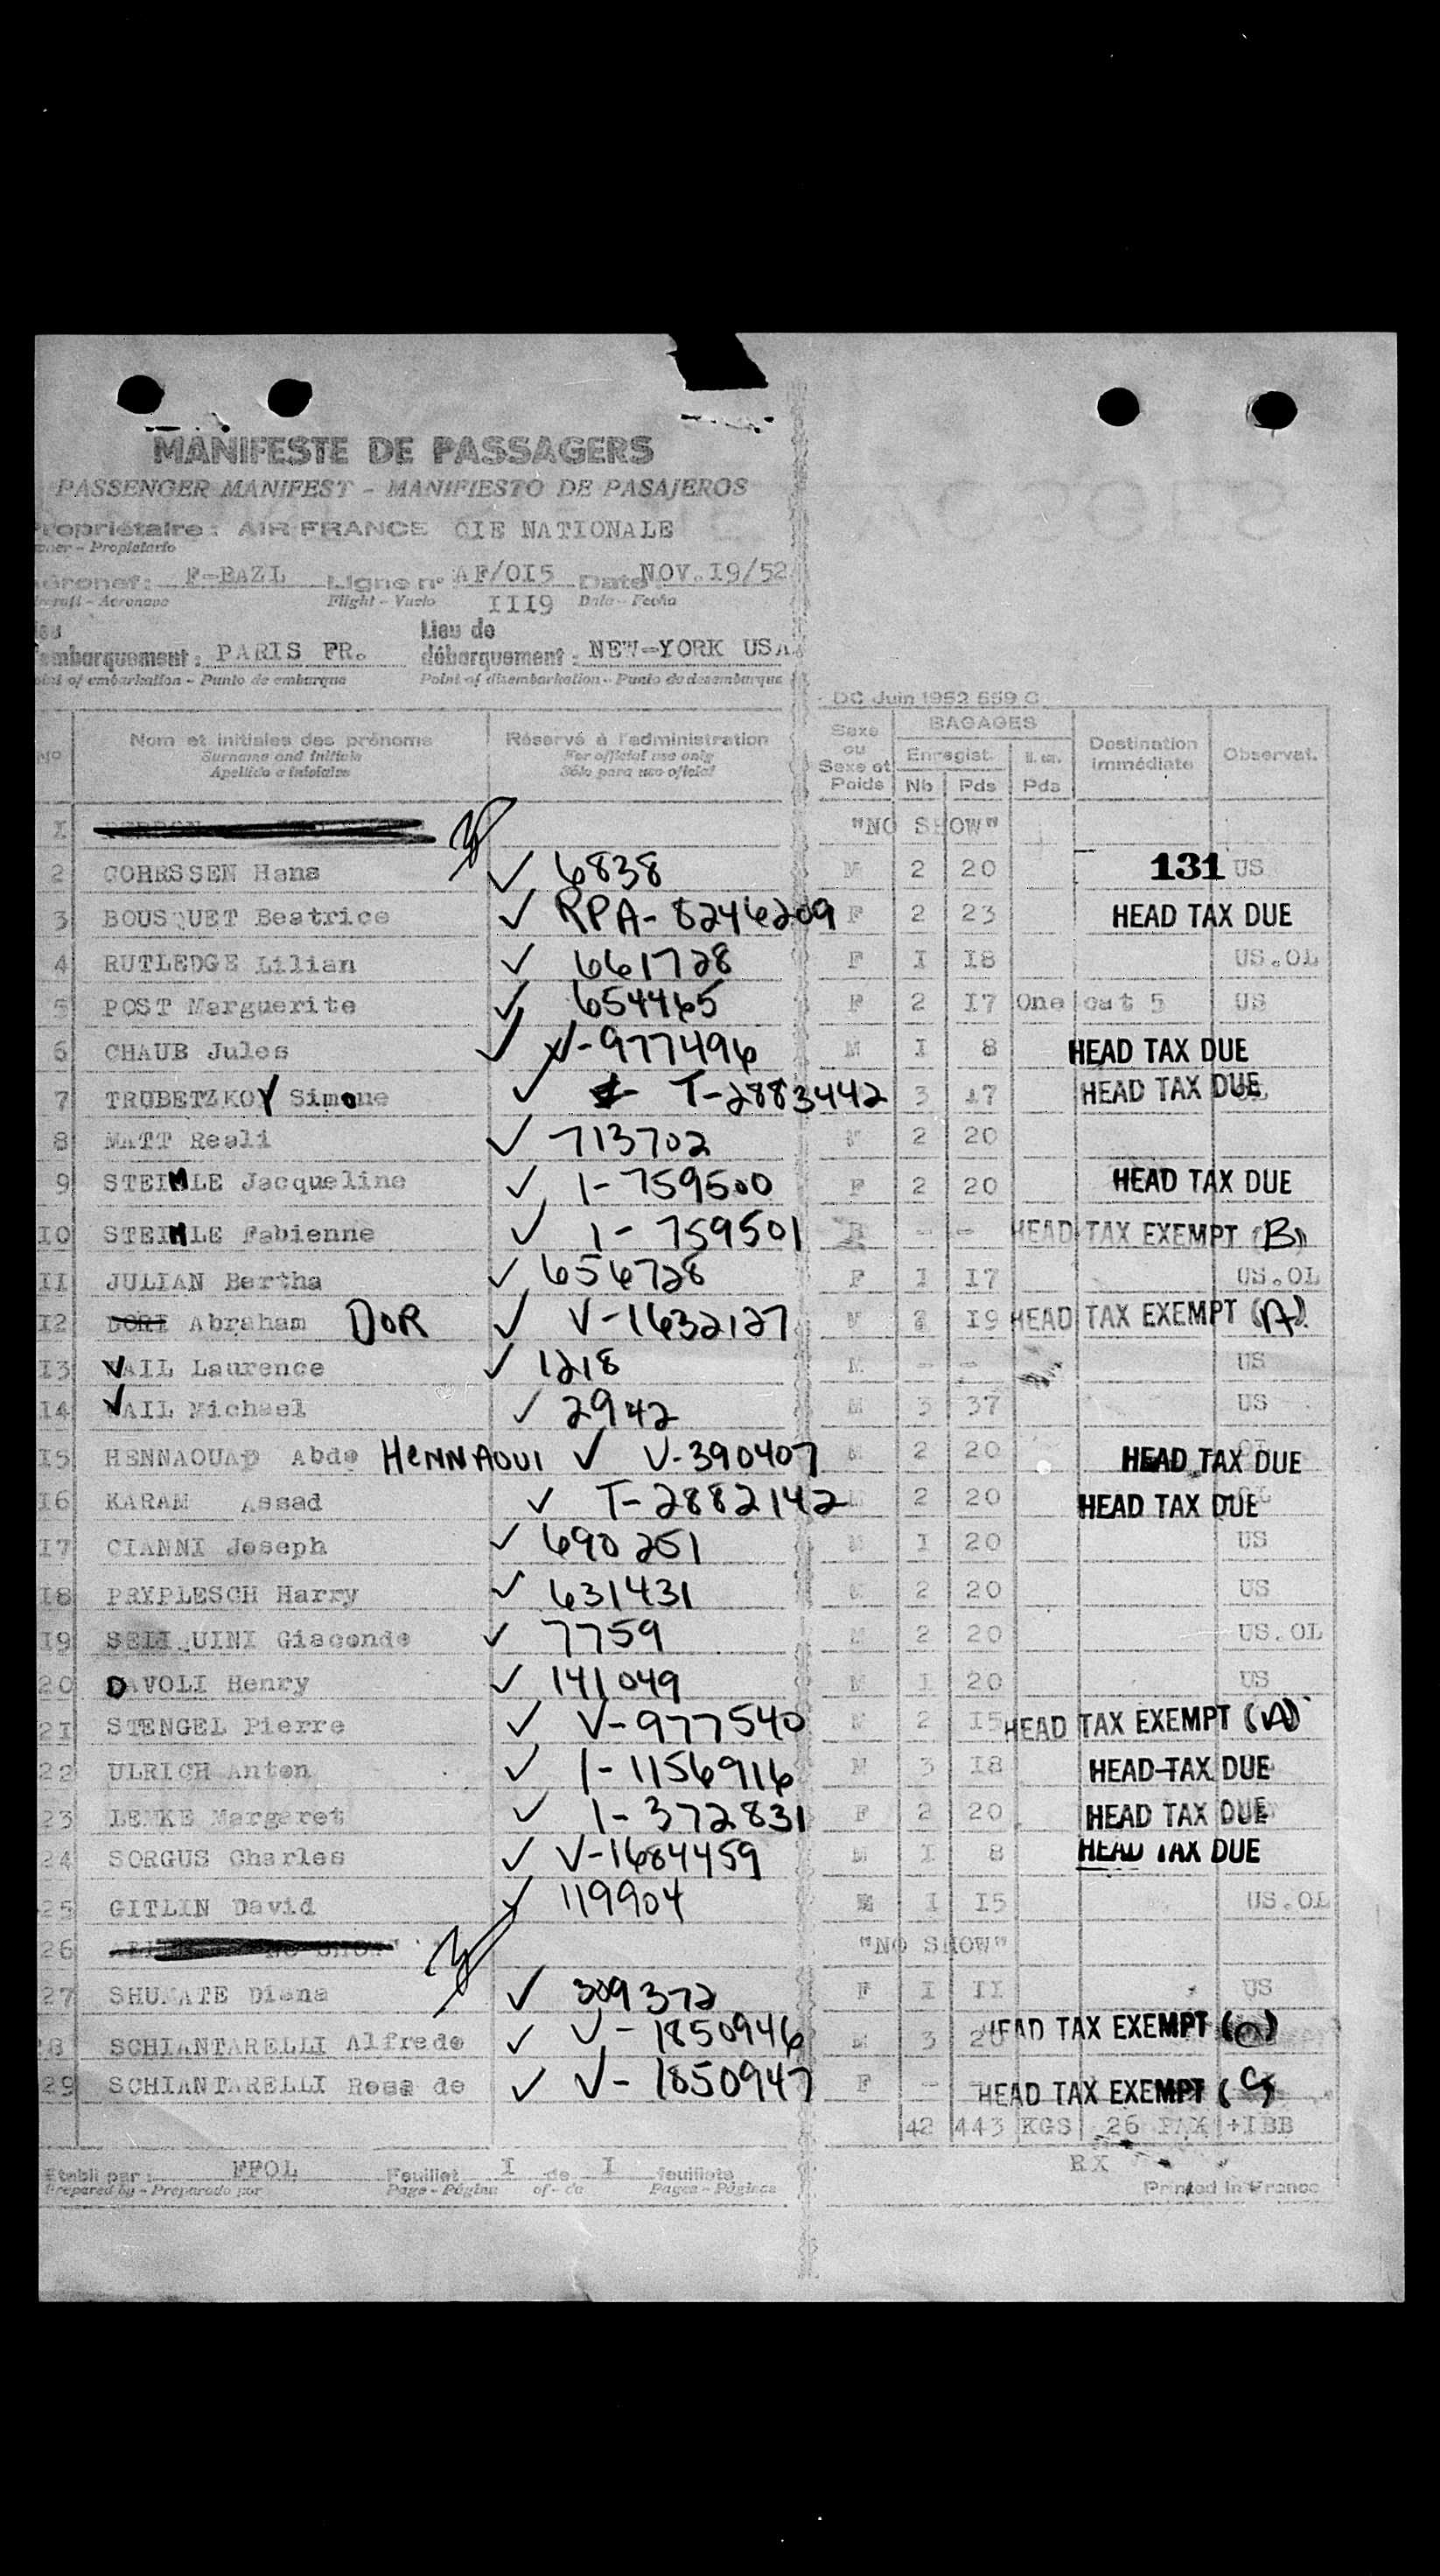 MANIFESTE DE PASSAGERS
PASSENGER MANIFEST - MANIFIESTO DE PASAJEROS
ropriétaire : AIR FRANCE CIE NATIONALE
ner - Propietario
éronef : F-BAZL Ligne nº AF/OI5 Date NOV.I9/52
craft - Aeronave Flight - Vuelo III9 Date - Fecha
Lieu de
embarquement : PARIS FR. débarquement : NEW-YORK USA
oint of embarkation - Punto de embarque Point of disembarkation - Punto de desembarque
DC Juin 1952 559 C
Nº Nom et initiales des prénoms Réservé à l'administration Saxe ou Saxe et Poids BAGAGES Destination immédiate Observat.
Surname and initials For official use only Enregist.
Apellido e iniciales Sólo para uso oficial Nb Pds Pds
I "NO SHOW"
2 COHRSSEN Hans ✓ 6838 M 2 20 131 US
3 BOUSQUET Beatrice ✓ RPA-8246209 F 2 23 HEAD TAX DUE
4 RUTLEDGE Lilian ✓ 661728 F I I8 US.OL
5 POST Marguerite ✓ 654465 F 2 I7 One cat 5 US
6 CHAUB Jules ✓ V-977496 M I 8 HEAD TAX DUE
7 TRUBETZKOY Simone ✓ T-2883442 3 47 HEAD TAX DUE
8 MATT Reali ✓ 713702 2 20
9 STEIMLE Jacqueline ✓ 1-759500 F 2 20 HEAD TAX DUE
IO STEIMLE Fabienne ✓ 1-759501 - - HEAD TAX EXEMPT (B)
II JULIAN Bertha ✓ 656728 F I I7 US.OL
I2 Abraham DOR ✓ V-1632127 M 2 I9 HEAD TAX EXEMPT (A)
I3 VAIL Laurence ✓ 1218 M - - US
I4 VAIL Michael ✓ 2942 M 3 37 US
I5 HENNAOUAD Abdo HENNAOUI ✓ V-390407 M 2 20 HEAD TAX DUE
I6 KARAM Assad ✓ T-2882142 2 20 HEAD TAX DUE
I7 CIANNI Joseph ✓ 690251 M I 20 US
I8 PRYPLESCH Harry ✓ 631431 M 2 20 US
I9 UINI Giaconde ✓ 7759 M 2 20 US.OL
20 DAVOLI Henry ✓ 141049 M I 20 US
2I STENGEL Pierre ✓ V-977540 M 2 I5 HEAD TAX EXEMPT (A)
22 ULRICH Anton ✓ 1-1156916 M 3 I8 HEAD TAX DUE
23 LEMKE Margaret ✓ 1-372831 F 2 20 HEAD TAX DUE
24 SORGUS Charles ✓ V-1684459 M I 8 HEAD TAX DUE
25 GITLIN David ✓ 119904 M I I5 US.OL
26 "NO SHOW"
27 SHUMATE Diana ✓ 309372 F I II US
28 SCHIANTARELLI Alfredo ✓ V-1850946 M 3 20 HEAD TAX EXEMPT
29 SCHIANTARELLI Rosa de ✓ V-1850947 F - HEAD TAX EXEMPT
42 443 KGS 26 PAX +IBB
RX
Etabli par : FFOL Feuillet I de I feuillets
Prepared by - Preparado por Page - Página of - de Pages - Páginas Printed in France